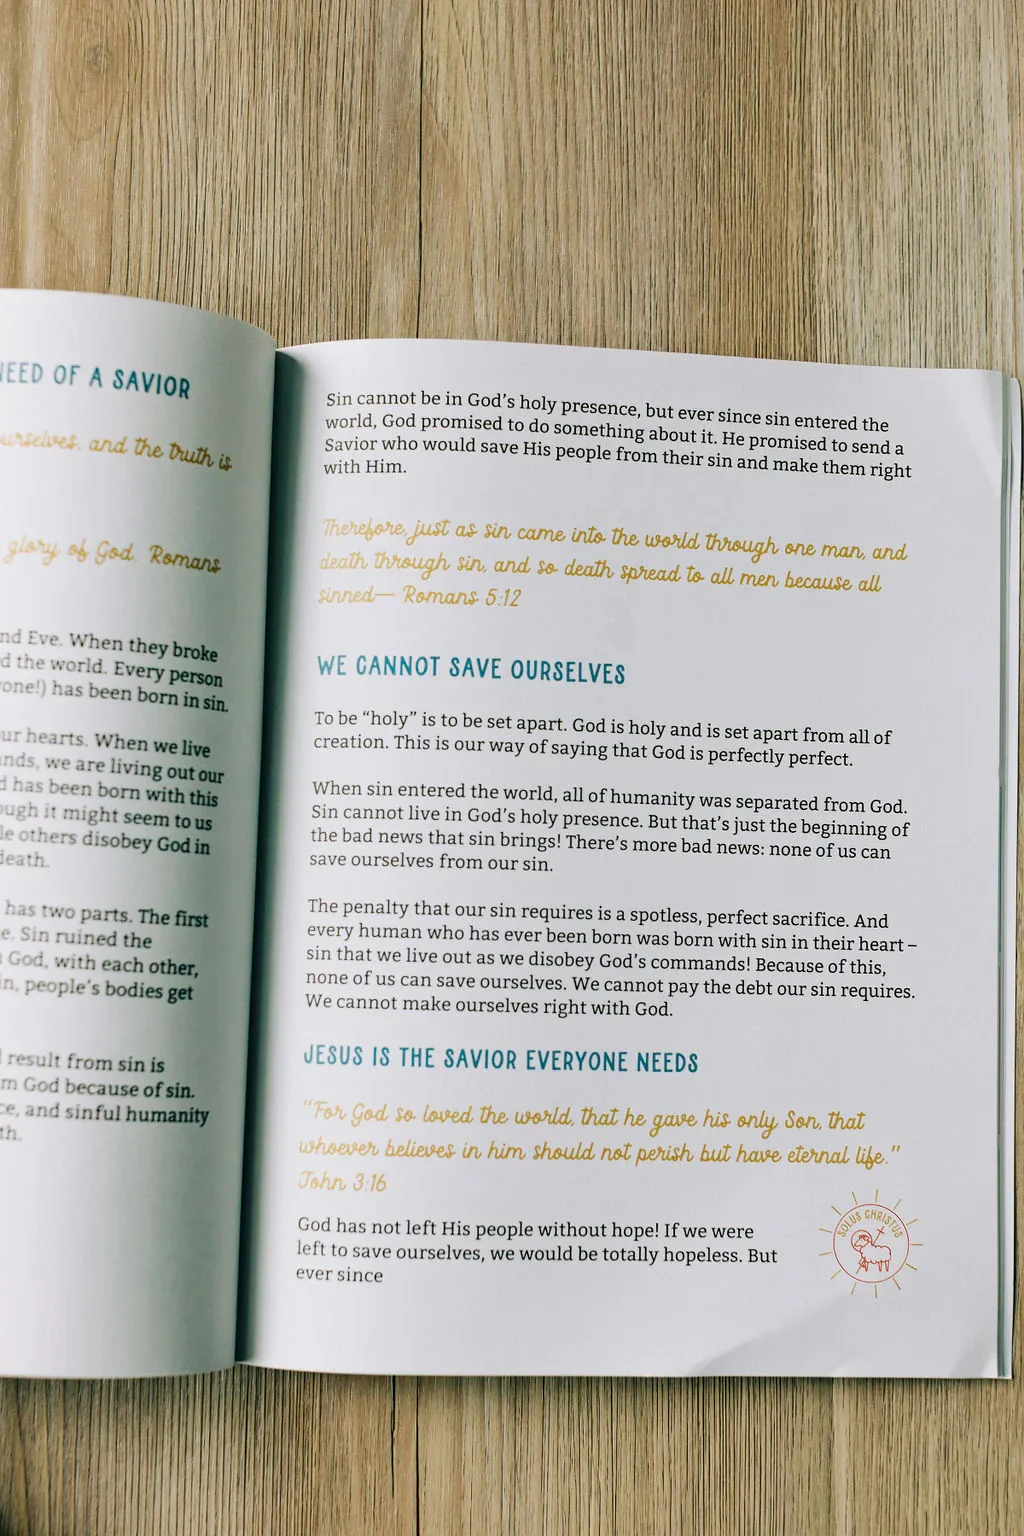 NEED OF A SAVIOR
ourselves, and the truth is
glory of God. Romans
and Eve. When they broke
the world. Every person
has been born in sin.
our hearts. When we live
we are living out our
has been born with this
it might seem to us
others disobey God in
death.
has two parts. The first
Sin ruined the
God, with each other,
people's bodies get
result from sin is
God because of sin.
and sinful humanity
Sin cannot be in God's holy presence, but ever since sin entered the
world, God promised to do something about it. He promised to send a
Savior who would save His people from their sin and make them right
with Him.
Therefore, just as sin came into the world through one man, and
death through sin, and so death spread to all men because all
sinned— Romans 5:12
WE CANNOT SAVE OURSELVES
To be “holy” is to be set apart. God is holy and is set apart from all of
creation. This is our way of saying that God is perfectly perfect.
When sin entered the world, all of humanity was separated from God.
Sin cannot live in God's holy presence. But that's just the beginning of
the bad news that sin brings! There's more bad news: none of us can
save ourselves from our sin.
The penalty that our sin requires is a spotless, perfect sacrifice. And
every human who has ever been born was born with sin in their heart –
sin that we live out as we disobey God's commands! Because of this,
none of us can save ourselves. We cannot pay the debt our sin requires.
We cannot make ourselves right with God.
JESUS IS THE SAVIOR EVERYONE NEEDS
"For God so loved the world, that he gave his only Son, that
whoever believes in him should not perish but have eternal life."
John 3:16
God has not left His people without hope! If we were
left to save ourselves, we would be totally hopeless. But
ever since
SOLUS CHRISTUS